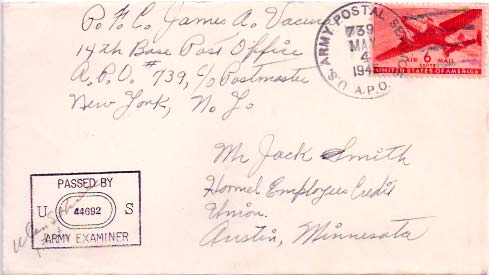 P.F.C. James A. Vacura
14th Base Post Office
A.P.O. #739, c/o Postmaster
New York, N.Y.
U.S. ARMY POSTAL SERVICE
739
MAY
4
194
A.P.O.
AIR 6 MAIL
CENTS
UNITED STATES OF AMERICA
Mr Jack Smith
Hormel Employees Credit
Union.
Austin, Minnesota
PASSED BY
U 44692 S
ARMY EXAMINER